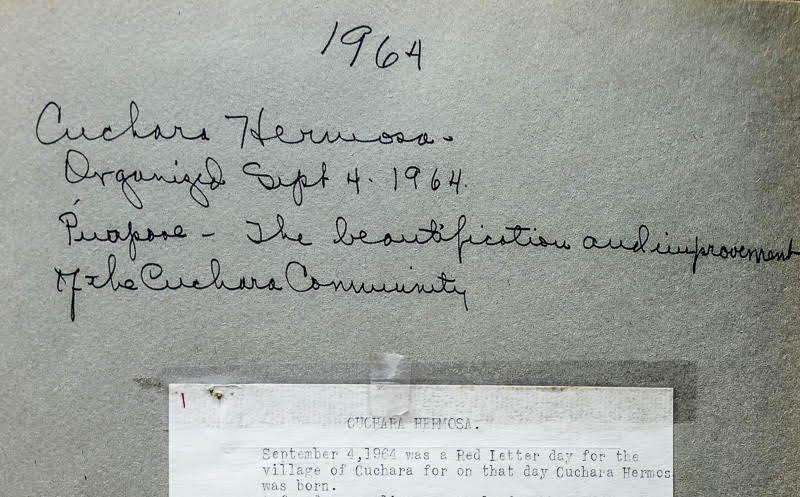 1964
Cuchara Hermosa-
Organized Sept 4. 1964.
Purpose - The beautification and improvement
Of the Cuchara Community
CUCHARA HERMOSA.
September 4,1964 was a Red Letter day for the
village of Cuchara for on that day Cuchara Hermos
was born.